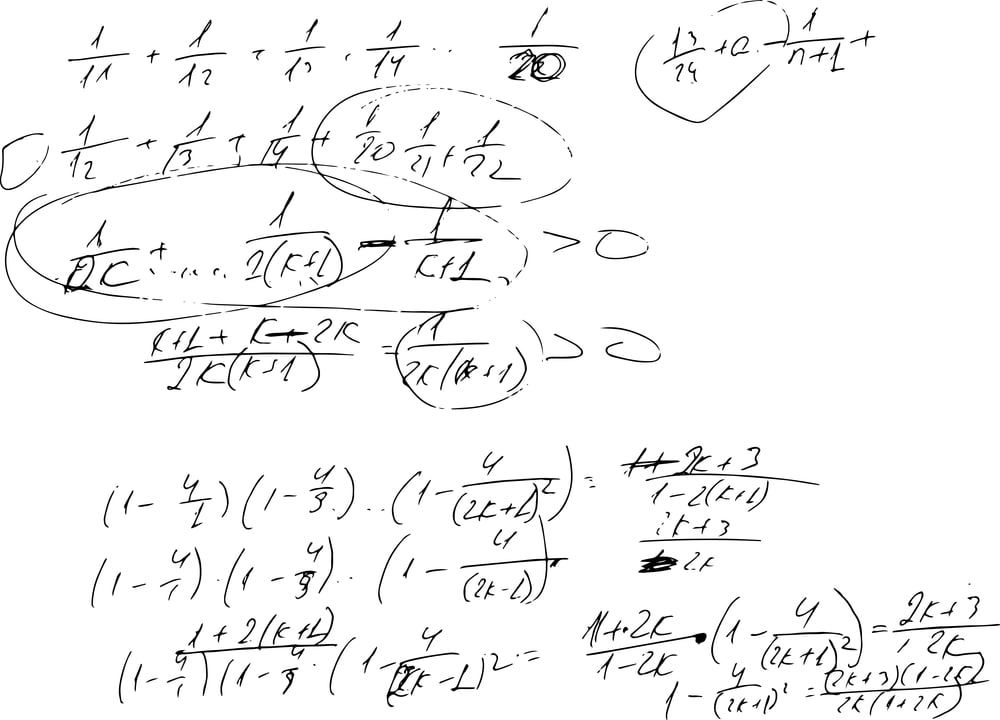 1/11 + 1/12 + 1/13 . 1/14 .. 1/20
13/24 + a - 1/(n+1) +
1/12 + 1/13 + 1/14 + 1/20 1/21 + 1/22
1/2K + ..... 1/(2(K+1)) - 1/(K+1) > 0
(K+1 + K + 2K)/(2K(K+1)) = 1/(2K(K+1)) > 0
(1 - 4/1)(1 - 4/9)...(1 - 4/(2K+1)²) = (2K+3)/(1-2(K+1))
(2K+3)/2K
(1 - 4/1).(1 - 4/9)..(1 - 4/(2K-1))
1+2(K+1)
(1 - 4/1)(1 - 4/9.(1 - 4/(2K-1)² =
(1+2K)/(1-2K) . (1 - 4/(2K+1)²) = (2K+3)/2K
1 - 4/(2K+1)² = (2K+3)(1-2K)/(2K(1+2K))